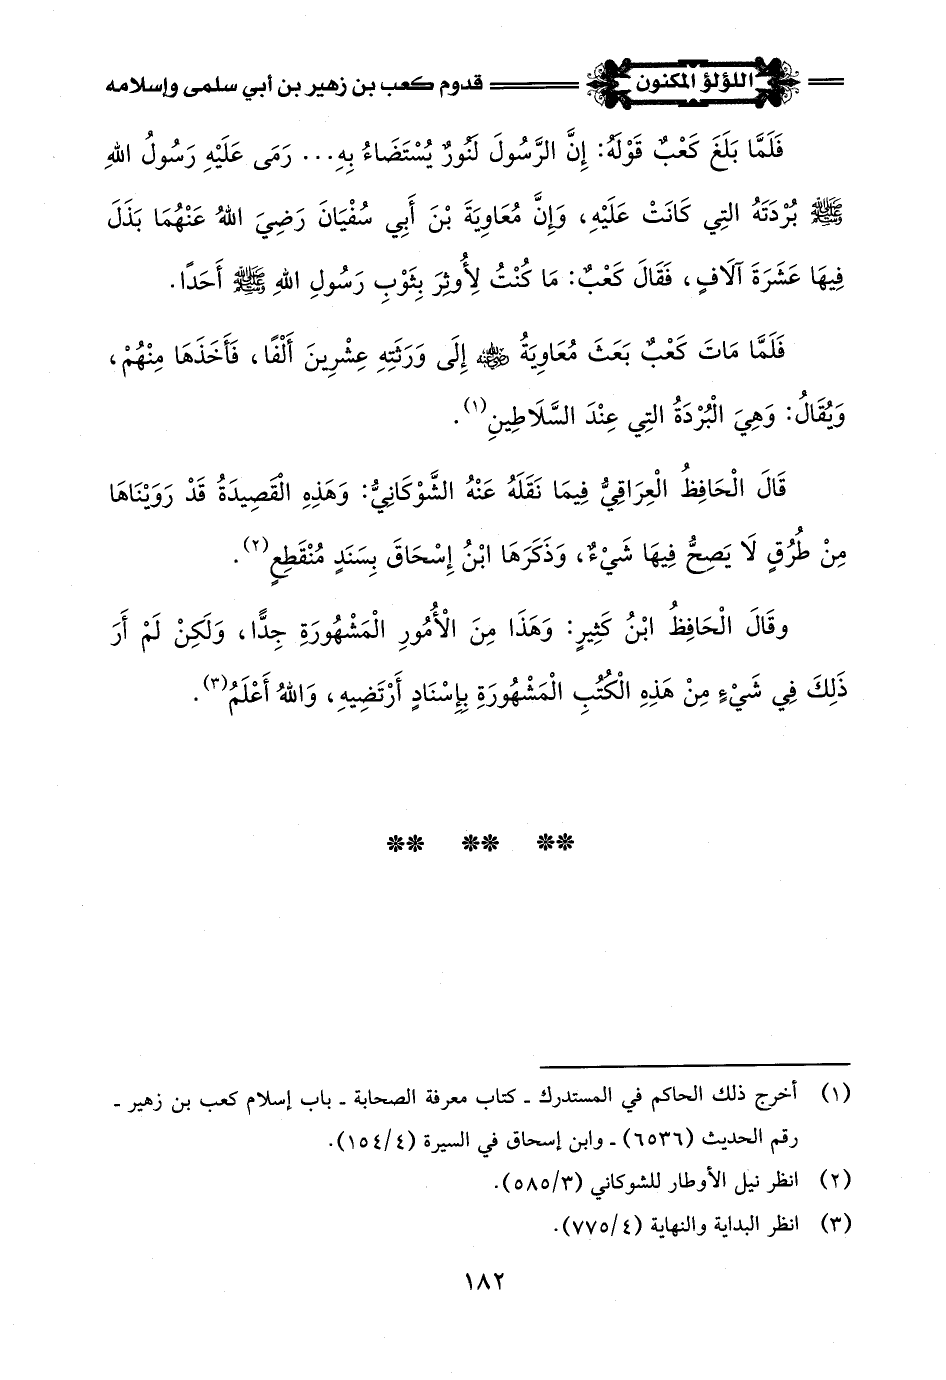 اللؤلؤ المكنون قدوم كعب بن زهير بن أبي سلمى وإسلامه
فَلَمَّا بَلَغَ كَعْبٌ قَوْلَهُ: إِنَّ الرَّسُولَ لَنُورٌ يُسْتَضَاءُ بِهِ... رَمَى عَلَيْهِ رَسُولُ اللهِ
ﷺ بُرْدَتَهُ التِي كَانَتْ عَلَيْهِ، وَإِنَّ مُعَاوِيَةَ بْنَ أَبِي سُفْيَانَ رَضِيَ اللهُ عَنْهُمَا بَذَلَ
فِيهَا عَشَرَةَ آلَافٍ، فَقَالَ كَعْبٌ: مَا كُنْتُ لِأُوثِرَ بِثَوْبِ رَسُولِ اللهِ ﷺ أَحَدًا.
فَلَمَّا مَاتَ كَعْبٌ بَعَثَ مُعَاوِيَةُ رضي الله عنه إِلَى وَرَثَتِهِ عِشْرِينَ أَلْفًا، فَأَخَذَهَا مِنْهُمْ،
وَيُقَالُ: وَهِيَ الْبُرْدَةُ التِي عِنْدَ السَّلَاطِينِ(١).
قَالَ الْحَافِظُ الْعِرَاقِيُّ فِيمَا نَقَلَهُ عَنْهُ الشَّوْكَانِيُّ: وَهَذِهِ الْقَصِيدَةُ قَدْ رَوَيْنَاهَا
مِنْ طُرُقٍ لَا يَصِحُّ فِيهَا شَيْءٌ، وَذَكَرَهَا ابْنُ إِسْحَاقَ بِسَنَدٍ مُنْقَطِعٍ(٢).
وقَالَ الْحَافِظُ ابْنُ كَثِيرٍ: وَهَذَا مِنَ الْأُمُورِ الْمَشْهُورَةِ جِدًّا، وَلَكِنْ لَمْ أَرَ
ذَلِكَ فِي شَيْءٍ مِنْ هَذِهِ الْكُتُبِ الْمَشْهُورَةِ بِإِسْنَادٍ أَرْتَضِيهِ، وَاللهُ أَعْلَمُ(٣).
** ** **
(١) أخرج ذلك الحاكم في المستدرك - كتاب معرفة الصحابة - باب إسلام كعب بن زهير -
رقم الحديث (٦٥٣٦) - وابن إسحاق في السيرة (١٥٤/٤).
(٢) انظر نيل الأوطار للشوكاني (٥٨٥/٣).
(٣) انظر البداية والنهاية (٧٧٥/٤).
١٨٢